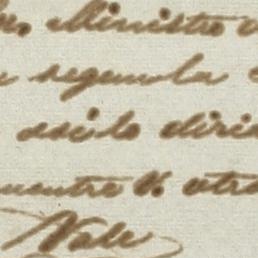 Ministro
segunda
asilo diri
cuentre V. otra
Vale